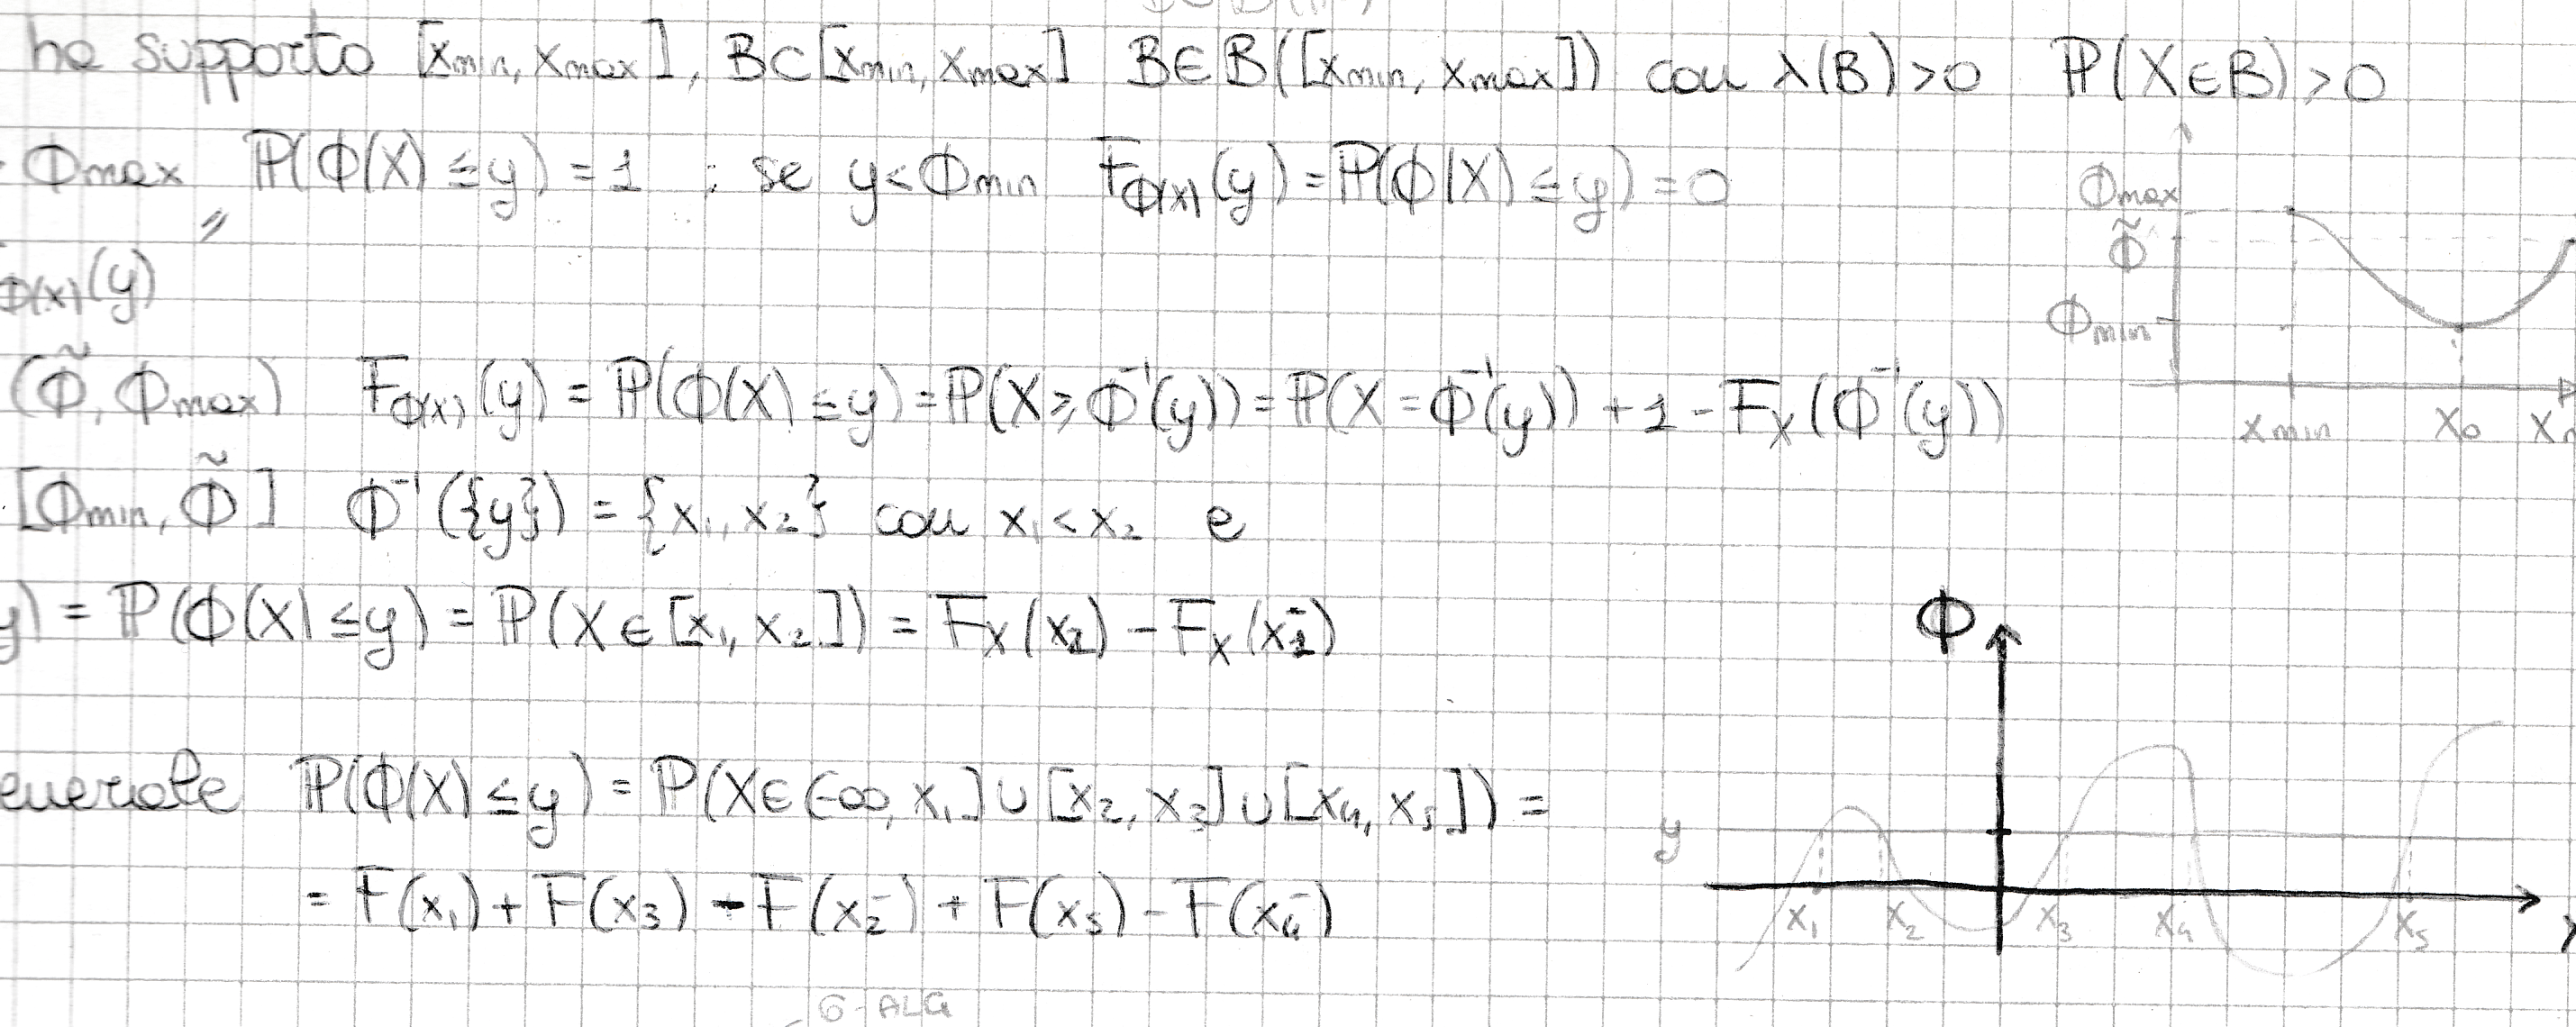 ha supporto [xmin, xmax], B⊂[xmin, xmax] B∈B([xmin, xmax]) con λ(B)>0 ℙ(X∈B)>0
Φmax ℙ(Φ(X)≤y)=1 ; se y<Φmin F_Φ(X)(y)=ℙ(Φ(X)≤y)=0
"
Φ(X)(y)
(Φ̃, Φmax) F_Φ(X)(y)=ℙ(Φ(X)≤y)=ℙ(X≥Φ⁻¹(y))=ℙ(X=Φ⁻¹(y))+1-F_X(Φ⁻¹(y))
[Φmin, Φ̃] Φ⁻¹({y})={x₁, x₂} con x₁<x₂ e
y)=ℙ(Φ(X)≤y)=ℙ(X∈[x₁, x₂])=F_X(x₂)-F_X(x₁⁻)
enerale ℙ(Φ(X)≤y)=ℙ(X∈(-∞, x₁]∪[x₂, x₃]∪[x₄, x₅])=
=F(x₁)+F(x₃)-F(x₂⁻)+F(x₅)-F(x₄⁻)
Φmax
Φ̃
Φmin
xmin x₀
Φ
y
x₁ x₂ x₃ x₄ x₅
σ-ALG